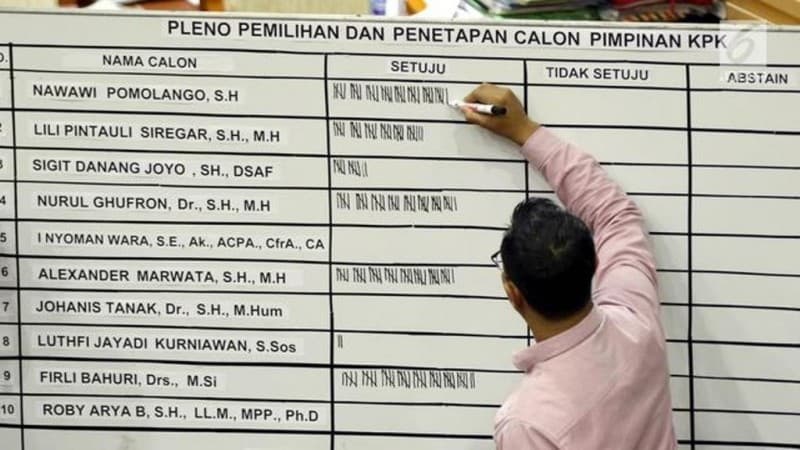 PLENO PEMILIHAN DAN PENETAPAN CALON PIMPINAN KPK
NAMA CALON SETUJU TIDAK SETUJU ABSTAIN
NAWAWI POMOLANGO, S.H
LILI PINTAULI SIREGAR, S.H., M.H
SIGIT DANANG JOYO , SH., DSAF
4 NURUL GHUFRON, Dr., S.H., M.H
5 I NYOMAN WARA, S.E., Ak., ACPA., CfrA., CA
6 ALEXANDER MARWATA, S.H., M.H
7 JOHANIS TANAK, Dr., S.H., M.Hum
8 LUTHFI JAYADI KURNIAWAN, S.Sos
9 FIRLI BAHURI, Drs., M.Si
10 ROBY ARYA B, S.H., LL.M., MPP., Ph.D